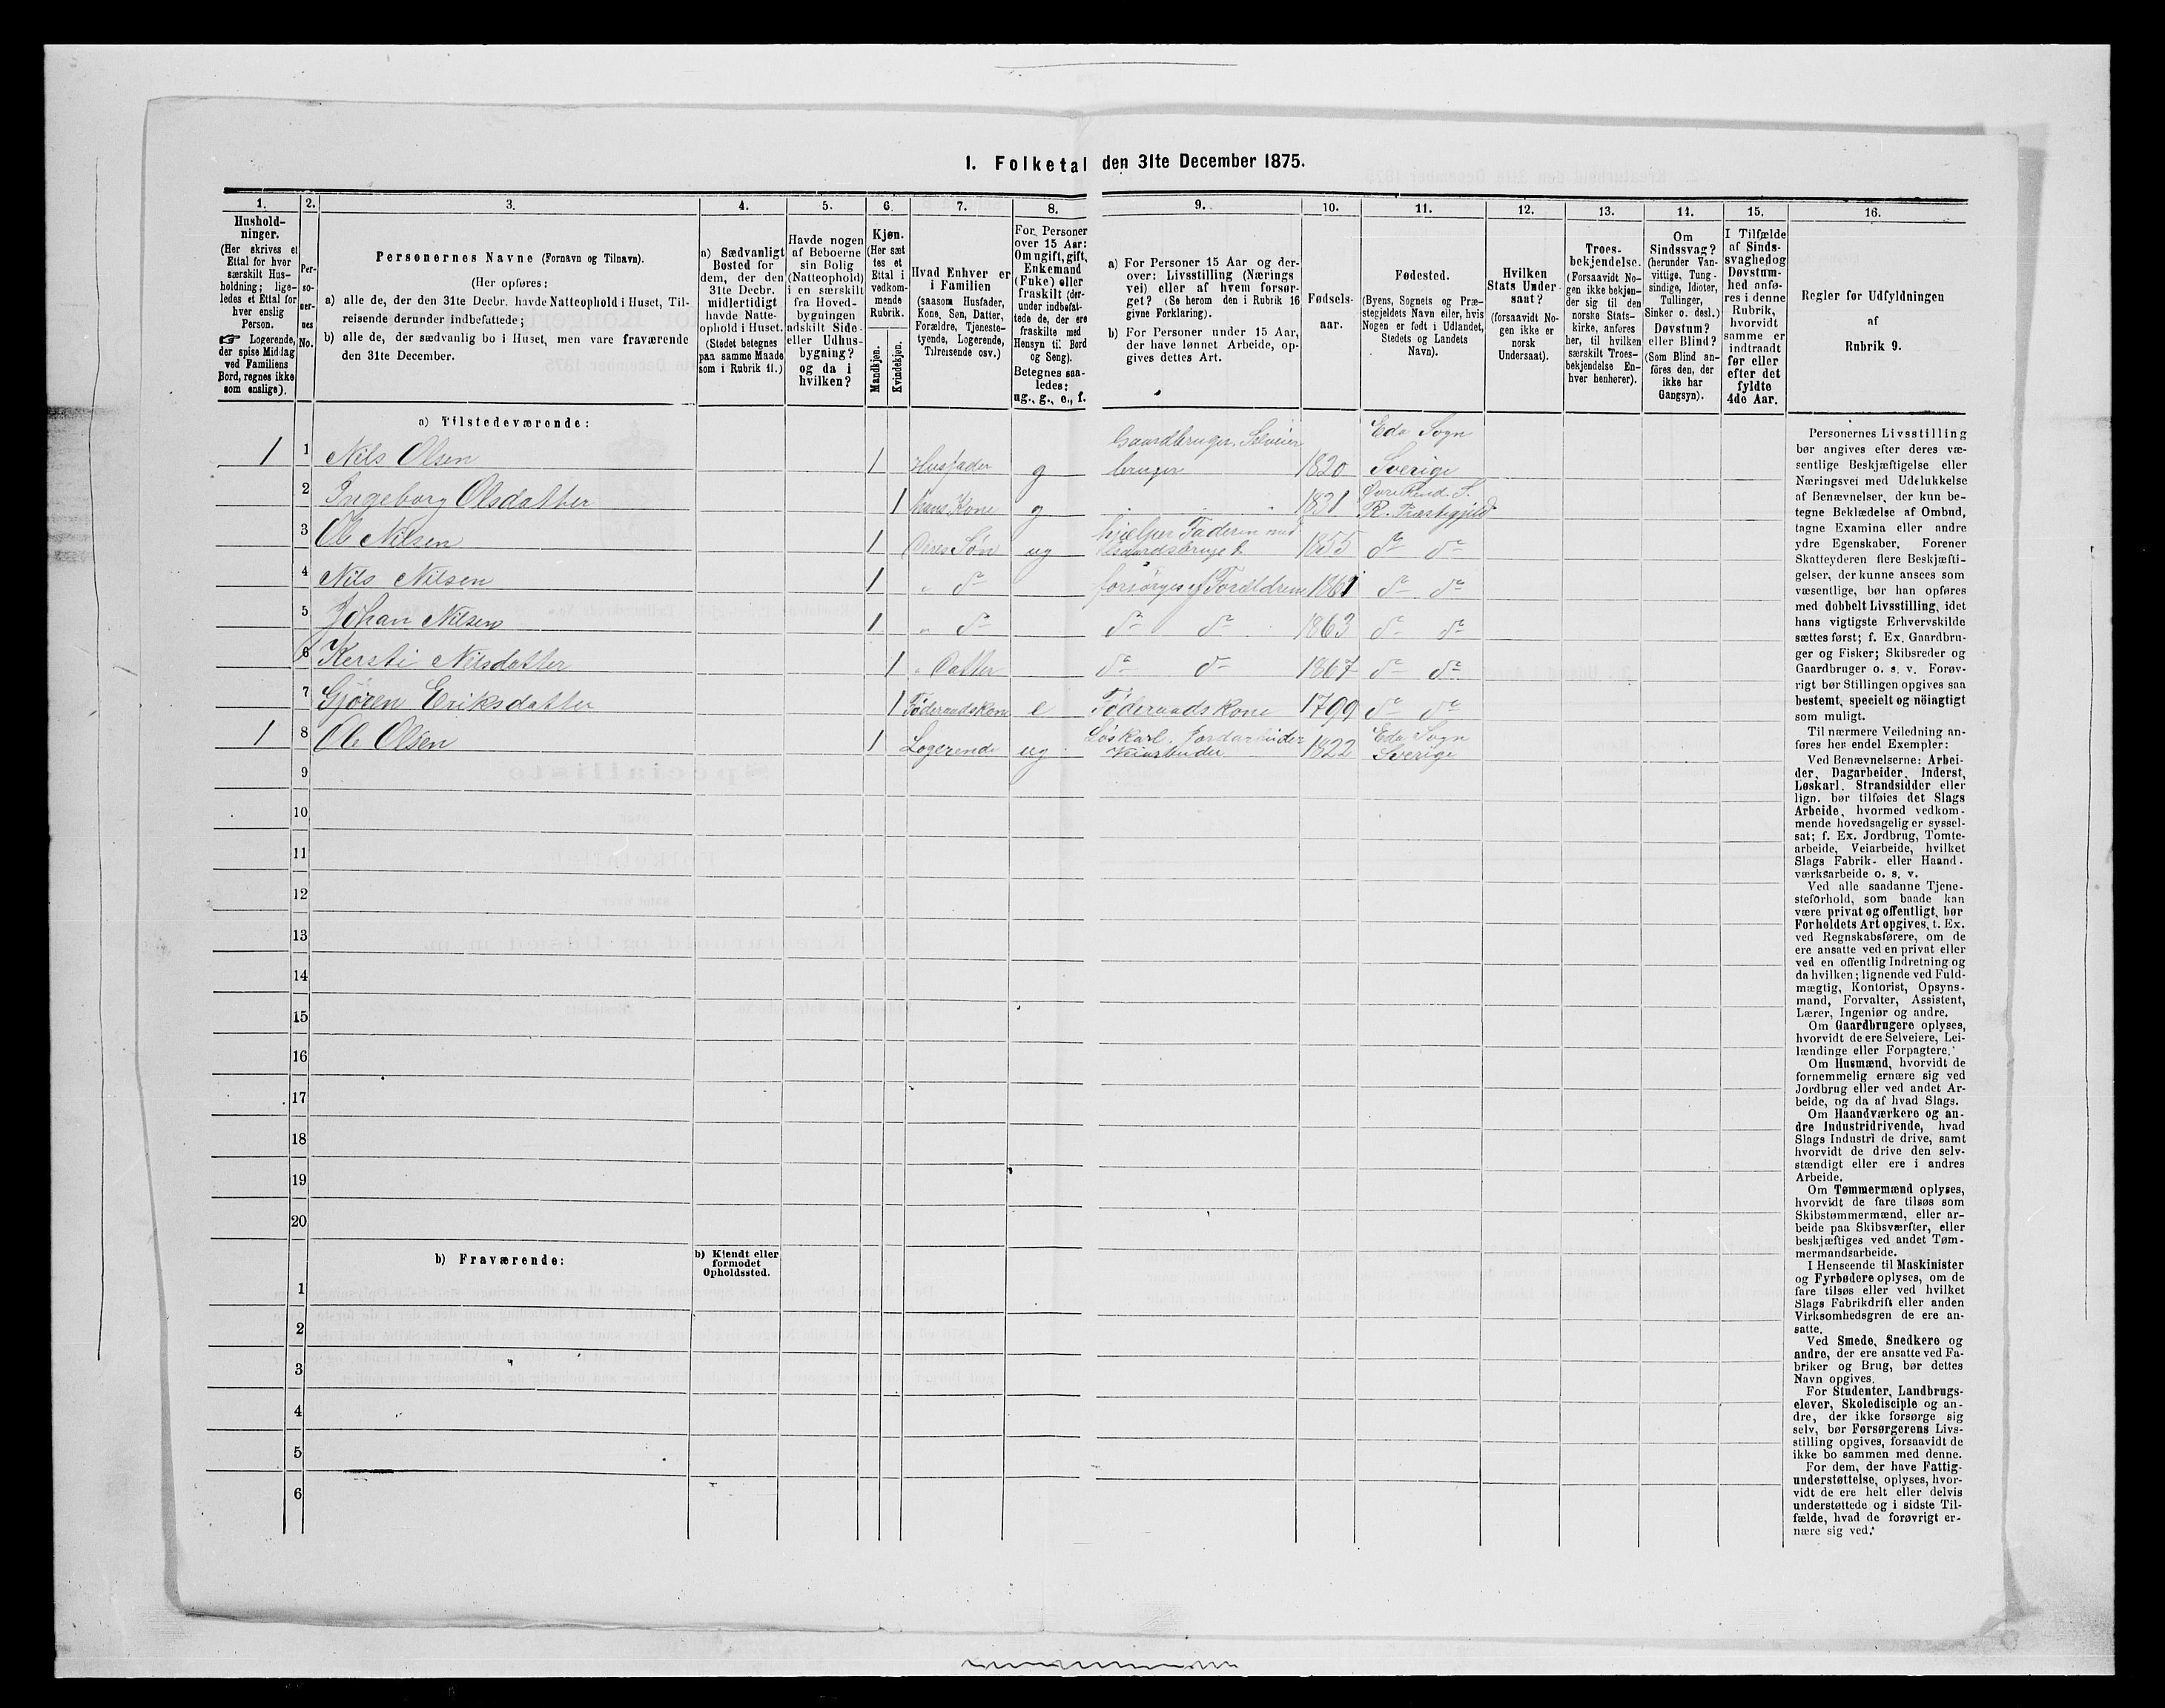 I. Folketal den 31te December 1875.
1.
Hushold-
ninger.
(Her skrives et
Ettal for hver
særskilt Hus-
holdning; lige-
ledes et Ettal for
hver enslig
Person.
☞ Logerende,
der spise Middag
ved Familiens
Bord, regnes ikke
som enslige).
2.
Per-
so-
ner-
nes
No.
3.
Personernes Navne (Fornavn og Tilnavn).
(Her opføres:
a) alle de, der den 31te Decbr. havde Natteophold i Huset, Til-
reisende derunder indbefattede;
b) alle de, der sædvanlig bo i Huset, men vare fraværende
den 31te December.
4.
a) Sædvanligt
Bosted for
dem, der den
31te Decbr.
midlertidigt
havde Natte-
ophold i Huset.
(Stedet betegnes
paa samme Maade
som i Rubrik 11.)
5.
Havde nogen
af Beboerne
sin Bolig
(Natteophold)
i en særskilt
fra Hoved-
bygningen
adskilt Side-
eller Udhus-
bygning?
og da i
hvilken?
6.
Kjøn.
(Her sæt
tes et
Ettal i
vedkom-
mende
Rubrik.
Mandkjøn.
Kvindekjøn.
7.
Hvad Enhver er
i Familien
(saasom Husfader,
Kone, Søn, Datter,
Forældre, Tjeneste-
tyende, Logerende,
Tilreisende osv.)
8.
For Personer
over 15 Aar:
Om ugift, gift,
Enkemand
(Enke) eller
fraskilt (der-
under indbefat-
tede de, der ere
fraskilte med
Hensyn til Bord
og Seng).
Betegnes saa-
ledes:
ug., g., e., f.
9.
a) For Personer 15 Aar og der-
over: Livsstilling (Nærings
vei) eller af hvem forsør-
get? (Se herom den i Rubrik 16
givne Forklaring).
b) For Personer under 15 Aar,
der have lønnet Arbeide, op-
gives dettes Art.
10.
Fødsels-
aar.
11.
Fødested.
(Byens, Sognets og Præ-
stegjeldets Navn eller, hvis
Nogen er født i Udlandet,
Stedets og Landets
Navn).
12.
Hvilken
Stats Under-
saat?
(forsaavidt No-
gen ikke er
norsk
Undersaat).
13.
Troes-
bekjendelse.
(Forsaavidt No-
gen ikke bekjen-
der sig til den
norske Stats-
kirke, anføres
her, til hvilken
særskilt Troes-
bekjendelse En-
hver henhører).
14.
Om
Sindssvag?
(herunder Van-
vittige, Tung-
sindige, Idioter,
Tullinger,
Sinker o. desl.)
Døvstum?
eller Blind?
(Som Blind an-
føres den, der
ikke har
Gangsyn).
15.
I Tilfælde
af Sinds-
svaghed og
Døvstum-
hed anfø-
res i denne
Rubrik,
hvorvidt
samme er
indtraadt
før eller
efter det
fyldte
4de Aar.
16.
Regler for Udfyldningen
af
Rubrik 9.
a) Tilstedeværende:
1 1 Nils Olsen 1 Husfader g Gaardbruger, Selveier bruger 1820 Eda Sogn Sverige
2 Ingeborg Olsdatter 1 hans Kone g 1821 Øvre Rend. S. R. Præstegjeld
3 Ole Nilsen 1 Deres Søn ug hjælper Faderen med Gaardsbruget 1855 do do
4 Nils Nilsen 1 " do forsørges af Foræld­rene 1861 do do
5 Johan Nilsen 1 " do do do 1863 do do
6 Kersti Nilsdatter 1 " Datter do do 1867 do do
7 Gjøren Eriksdatter 1 Føderaadskone e Føderaadskone 1799 do do
1 8 Ole Olsen 1 Logerende ug Løskarl. Jordarbeider Veiarbeider 1822 Eda Sogn Sverige
9
10
11
12
13
14
15
16
17
18
19
20
b) Fraværende:
b) Kjendt eller
formodet
Opholdssted.
1
2
3
4
5
6
Personernes Livsstilling
bør angives efter deres væ-
sentlige Beskjæftigelse eller
Næringsvei med Udelukkelse
af Benævnelser, der kun be-
tegne Beklædelse af Ombud,
tagne Examina eller andre
ydre Egenskaber. Forener
Skatteyderen flere Beskjæfti-
gelser, der kunne ansees som
væsentlige, bør han opføres
med dobbelt Livsstilling, idet
hans vigtigste Erhvervskilde
sættes først; f. Ex. Gaardbru-
ger og Fisker; Skibsreder og
Gaardbruger o. s. v. Forøv-
rigt bør Stillingen opgives saa
bestemt, specielt og nöiagtigt
som muligt.
Til nærmere Veiledning an-
føres her endel Exempler:
Ved Benævnelserne: Arbei-
der, Dagarbeider, Inderst,
Løskarl, Strandsidder eller
lign. bør tilføies det Slags
Arbeide, hvormed vedkom-
mende hovedsagelig er syssel-
sat; f. Ex. Jordbrug, Tomte-
arbeide, Veiarbeide, hvilket
Slags Fabrik- eller Haand-
værksarbeide o. s. v.
Ved alle saadanne Tjene-
steforhold, som baade kan
være privat og offentligt, bør
Forholdets Art opgives, t. Ex.
ved Regnskabsførere, om de
ere ansatte ved en privat eller
ved en offentlig Indretning og
da hvilken; lignende ved Fuld-
mægtig, Kontorist, Opsyns-
mand, Forvalter, Assistent,
Lærer, Ingeniør og andre.
Om Gaardbrugere oplyses,
hvorvidt de ere Selveiere, Lei-
lændinge eller Forpagtere.
Om Husmænd, hvorvidt de
fornemmelig ernære sig ved
Jordbrug eller ved andet Ar-
beide, og da af hvad Slags.
Om Haandværkere og an-
dre Industridrivende, hvad
Slags Industri de drive, samt
hvorvidt de drive den selv-
stændigt eller ere i andres
Arbeide.
Om Tømmermænd oplyses,
hvorvidt de fare tilsøs som
Skibstømmermænd, eller ar-
beide paa Skibsværfter, eller
beskjæftiges ved andet Tøm-
mermandsarbeide.
I Henseende til Maskinister
og Fyrbødere oplyses, om de
fare tilsøs eller ved hvilket
Slags Fabrikdrift eller anden
Virksomhedsgren de ere an-
satte.
Ved Smede, Snedkere og
andre, der ere ansatte ved Fa-
briker og Brug, bør dettes
Navn opgives.
For Studenter, Landbrugs-
elever, Skoledisciple og an-
dre, der ikke forsørge sig
selv, bør Forsørgerens Livs-
stilling opgives, forsaavidt de
ikke bo sammen med denne.
For dem, der have Fattig-
understøttelse, oplyses, hvor-
vidt de ere helt eller delvis
understøttede og i sidste Til-
fælde, hvad de forøvrigt er-
nære sig ved.